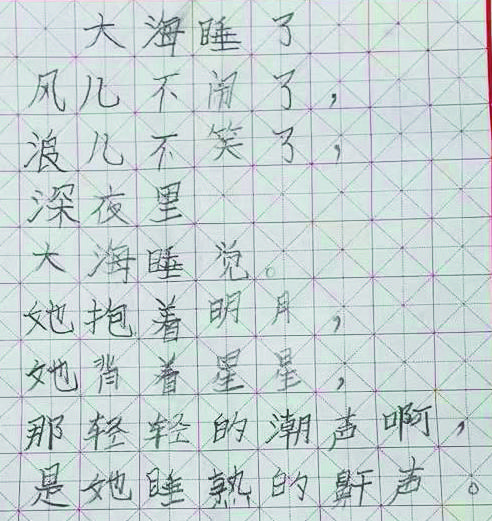 大海睡了
风儿不闹了，
浪儿不笑了，
深夜里
大海睡觉。
她抱着明月，
她背着星星，
那轻轻的潮声啊，
是她睡熟的鼾声。